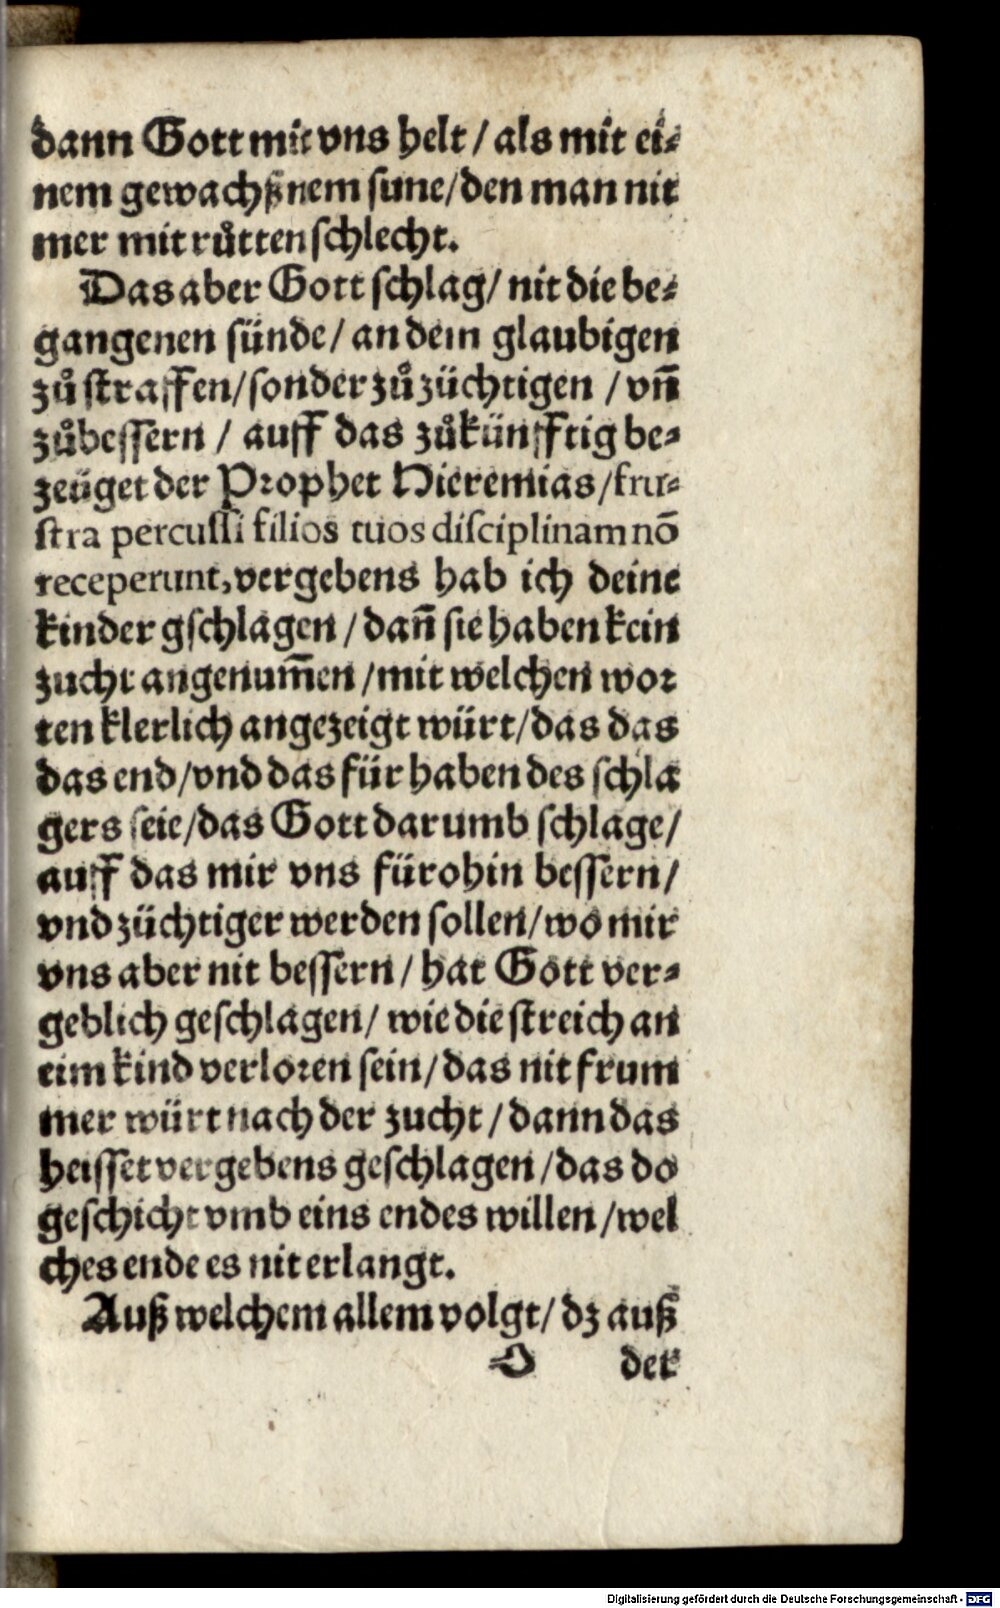 dann Gott mit vns helt / als mit ei⸗
nem gewachßnem sune/den man nit
mer mit růtten schlecht.
Das aber Gott schlag/ nit die be⸗
gangenen sünde/ an dem glaubigen
zů straffen/sonder zů züchtigen / vn̄
zůbessern / auff das zůkünfftig be⸗
zeüget der Prophet Hieremias/fru⸗
stra percussi filios tuos disciplinam nō
receperunt, vergebens hab ich deine
kinder gschlagen / dan̄ sie haben kein
zucht angenum̄en /mit welchen wor
ten klerlich angezeigt würt/das das
das end/vnd das für haben des schla
gers seie/das Gott darumb schlage/
auff das mir vns fürohin bessern/
vnd züchtiger werden sollen/wo mir
vns aber nit bessern/ hat Gott ver⸗
geblich geschlagen/ wie die streich an
eim kind verloren sein/das nit frum
mer würt nach der zucht / dann das
heisset vergebens geschlagen /das do
geschicht vmb eins endes willen /wel
ches ende es nit erlangt.
Auß welchem allem volgt/ dz auß
D der
Digitalisierung gefördert durch die Deutsche Forschungsgemeinschaft - DFG